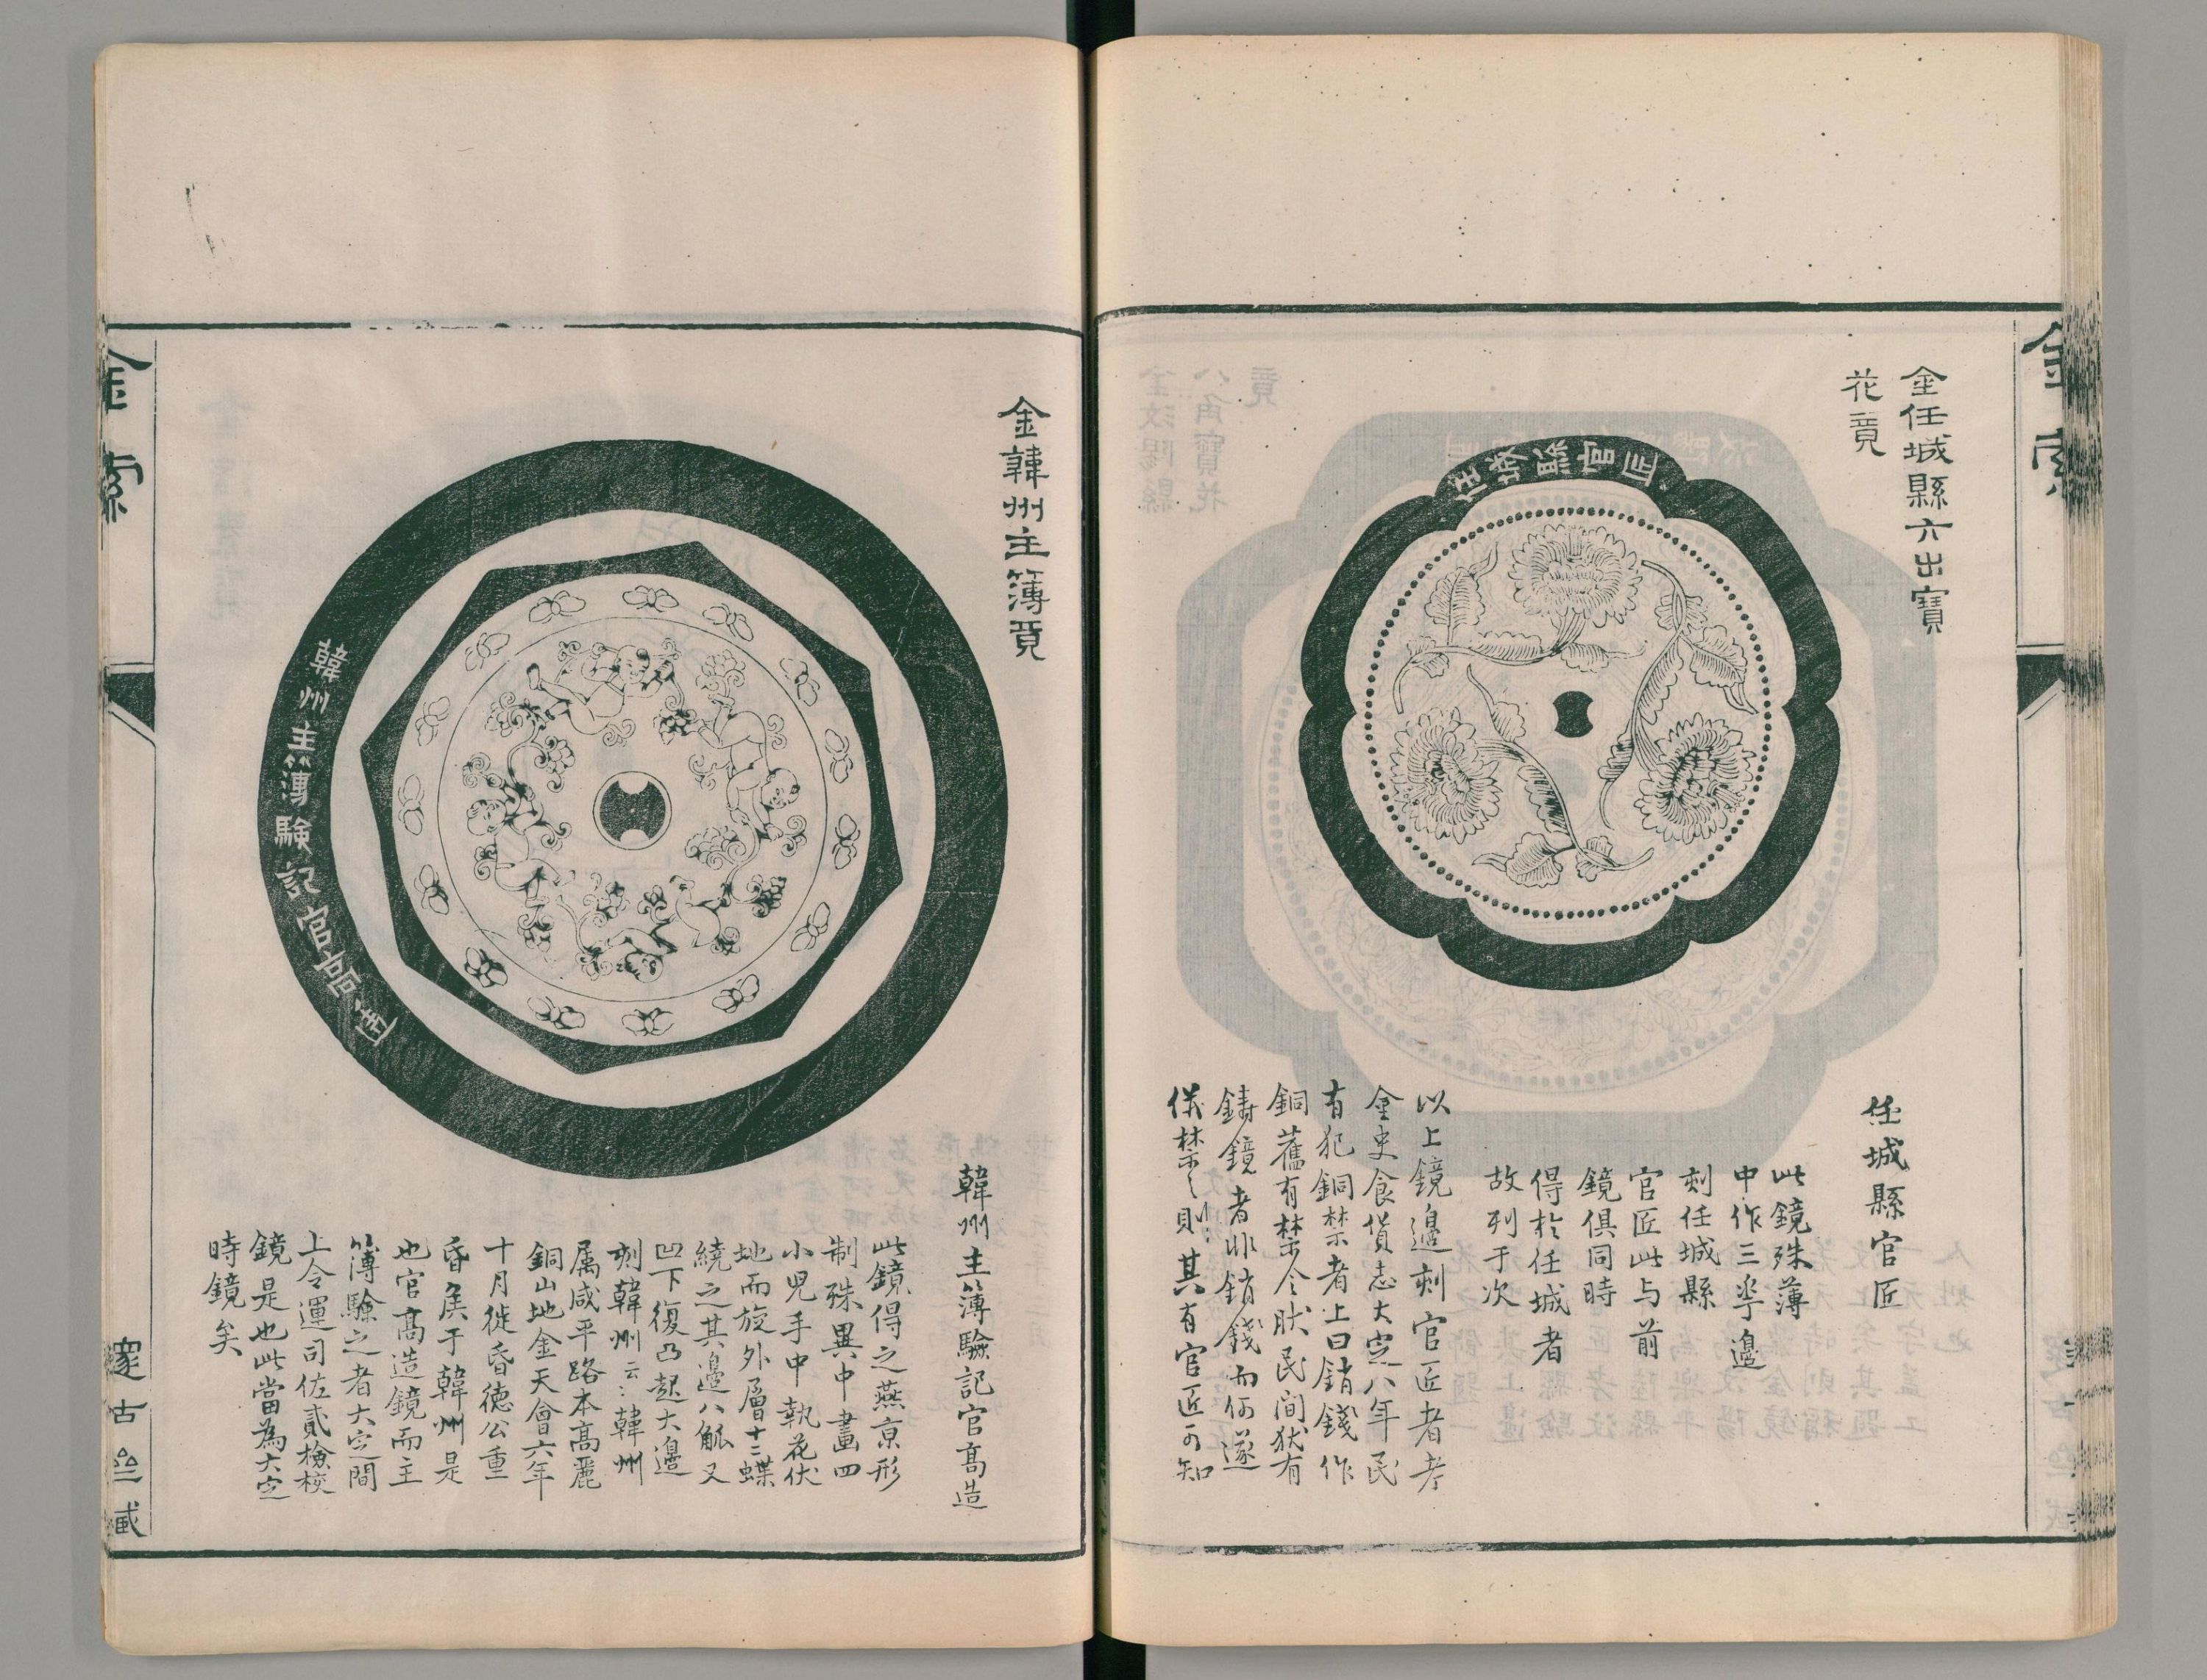 金索
金任城縣六出寶
花竟
任城縣官匠
任城縣官匠
此鏡殊薄
中作三華邊
刻任城縣
官匠此与前
鏡俱同時
得於任城者
故列于次
以上鏡邊刻官匠者考
金史食貨志大定八年民
有犯銅禁者上曰銷錢作
銅舊有禁令肰民间犹有
鑄鏡者非銷錢而何遂
倂禁之則其有官匠可知
金韓州主簿竟
韓州主簿驗記官高造
韓州主簿驗記官高造
此鏡得之燕京形
制殊異中畫四
小兒手中執花伏
地而旋外層十二蝶
繞之其邊八觚又
凹下復凸起大邊
刻韓州云〻韓州
属咸平路本高麗
銅山地金天會六年
十月徙昏德公重
昏矦于韓州是
也官高造鏡而主
簿驗之者大定間
上令運司佐貳檢校
鏡是也此當為大定
時鏡矣
金索
邃古齋藏